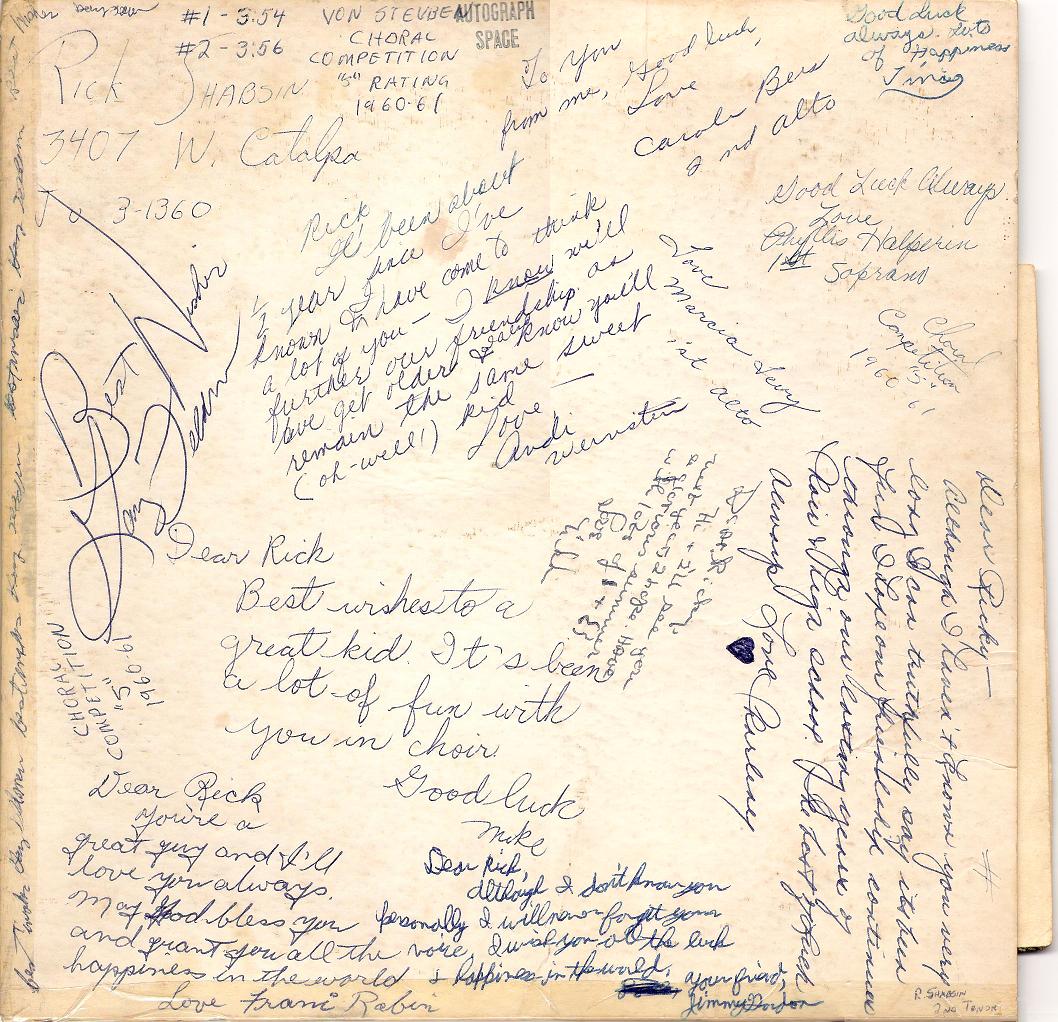 #1 - 3:54
#2 - 3:56
VON STEUBEN
CHORAL
COMPETITION
"S" RATING
1960-61
AUTOGRAPH
SPACE
Rick SHABSIN
3407 W. Catalpa
3-1360
To You
from me, Good luck,
Love
Carole Bers
2nd alto
Good Luck
always. Lots
of Happiness
Good Luck Always
Love
Phyllis Halperin
1st Soprano
Rick
It's been about
1/2 year since I've
known & I have come to think
a lot of you - I know we'll
further our friendship as
we get older & I know you'll
remain the same sweet
(oh-well!) kid
Love
Andi
Love
Marcia Levy
1st alto
Choral
Competition
"S"
1960-61
Best
Dear Rick
Best wishes to a
great kid. It's been
a lot of fun with
you in choir.
Good luck
Mike
CHORAL
COMPETITION
"S"
1960-61
Dear Ricky-
Although I haven't known you very
long I can truthfully say its been
fun. I hope our friendship continues
through our lasting years of
choir & high school. The best of luck
always
Love Charlene
Dear Rick
You're a
great guy and I'll
love you always.
May God bless you
and grant you all the
happiness in the world
Love Frani Rabin
Dear Rick,
Although I don't know you
personally I will never forget your
voice, I wish you all the luck
& happiness in the world.
Your friend,
Jimmy Gordon
R. SHABSIN
2ND TENOR